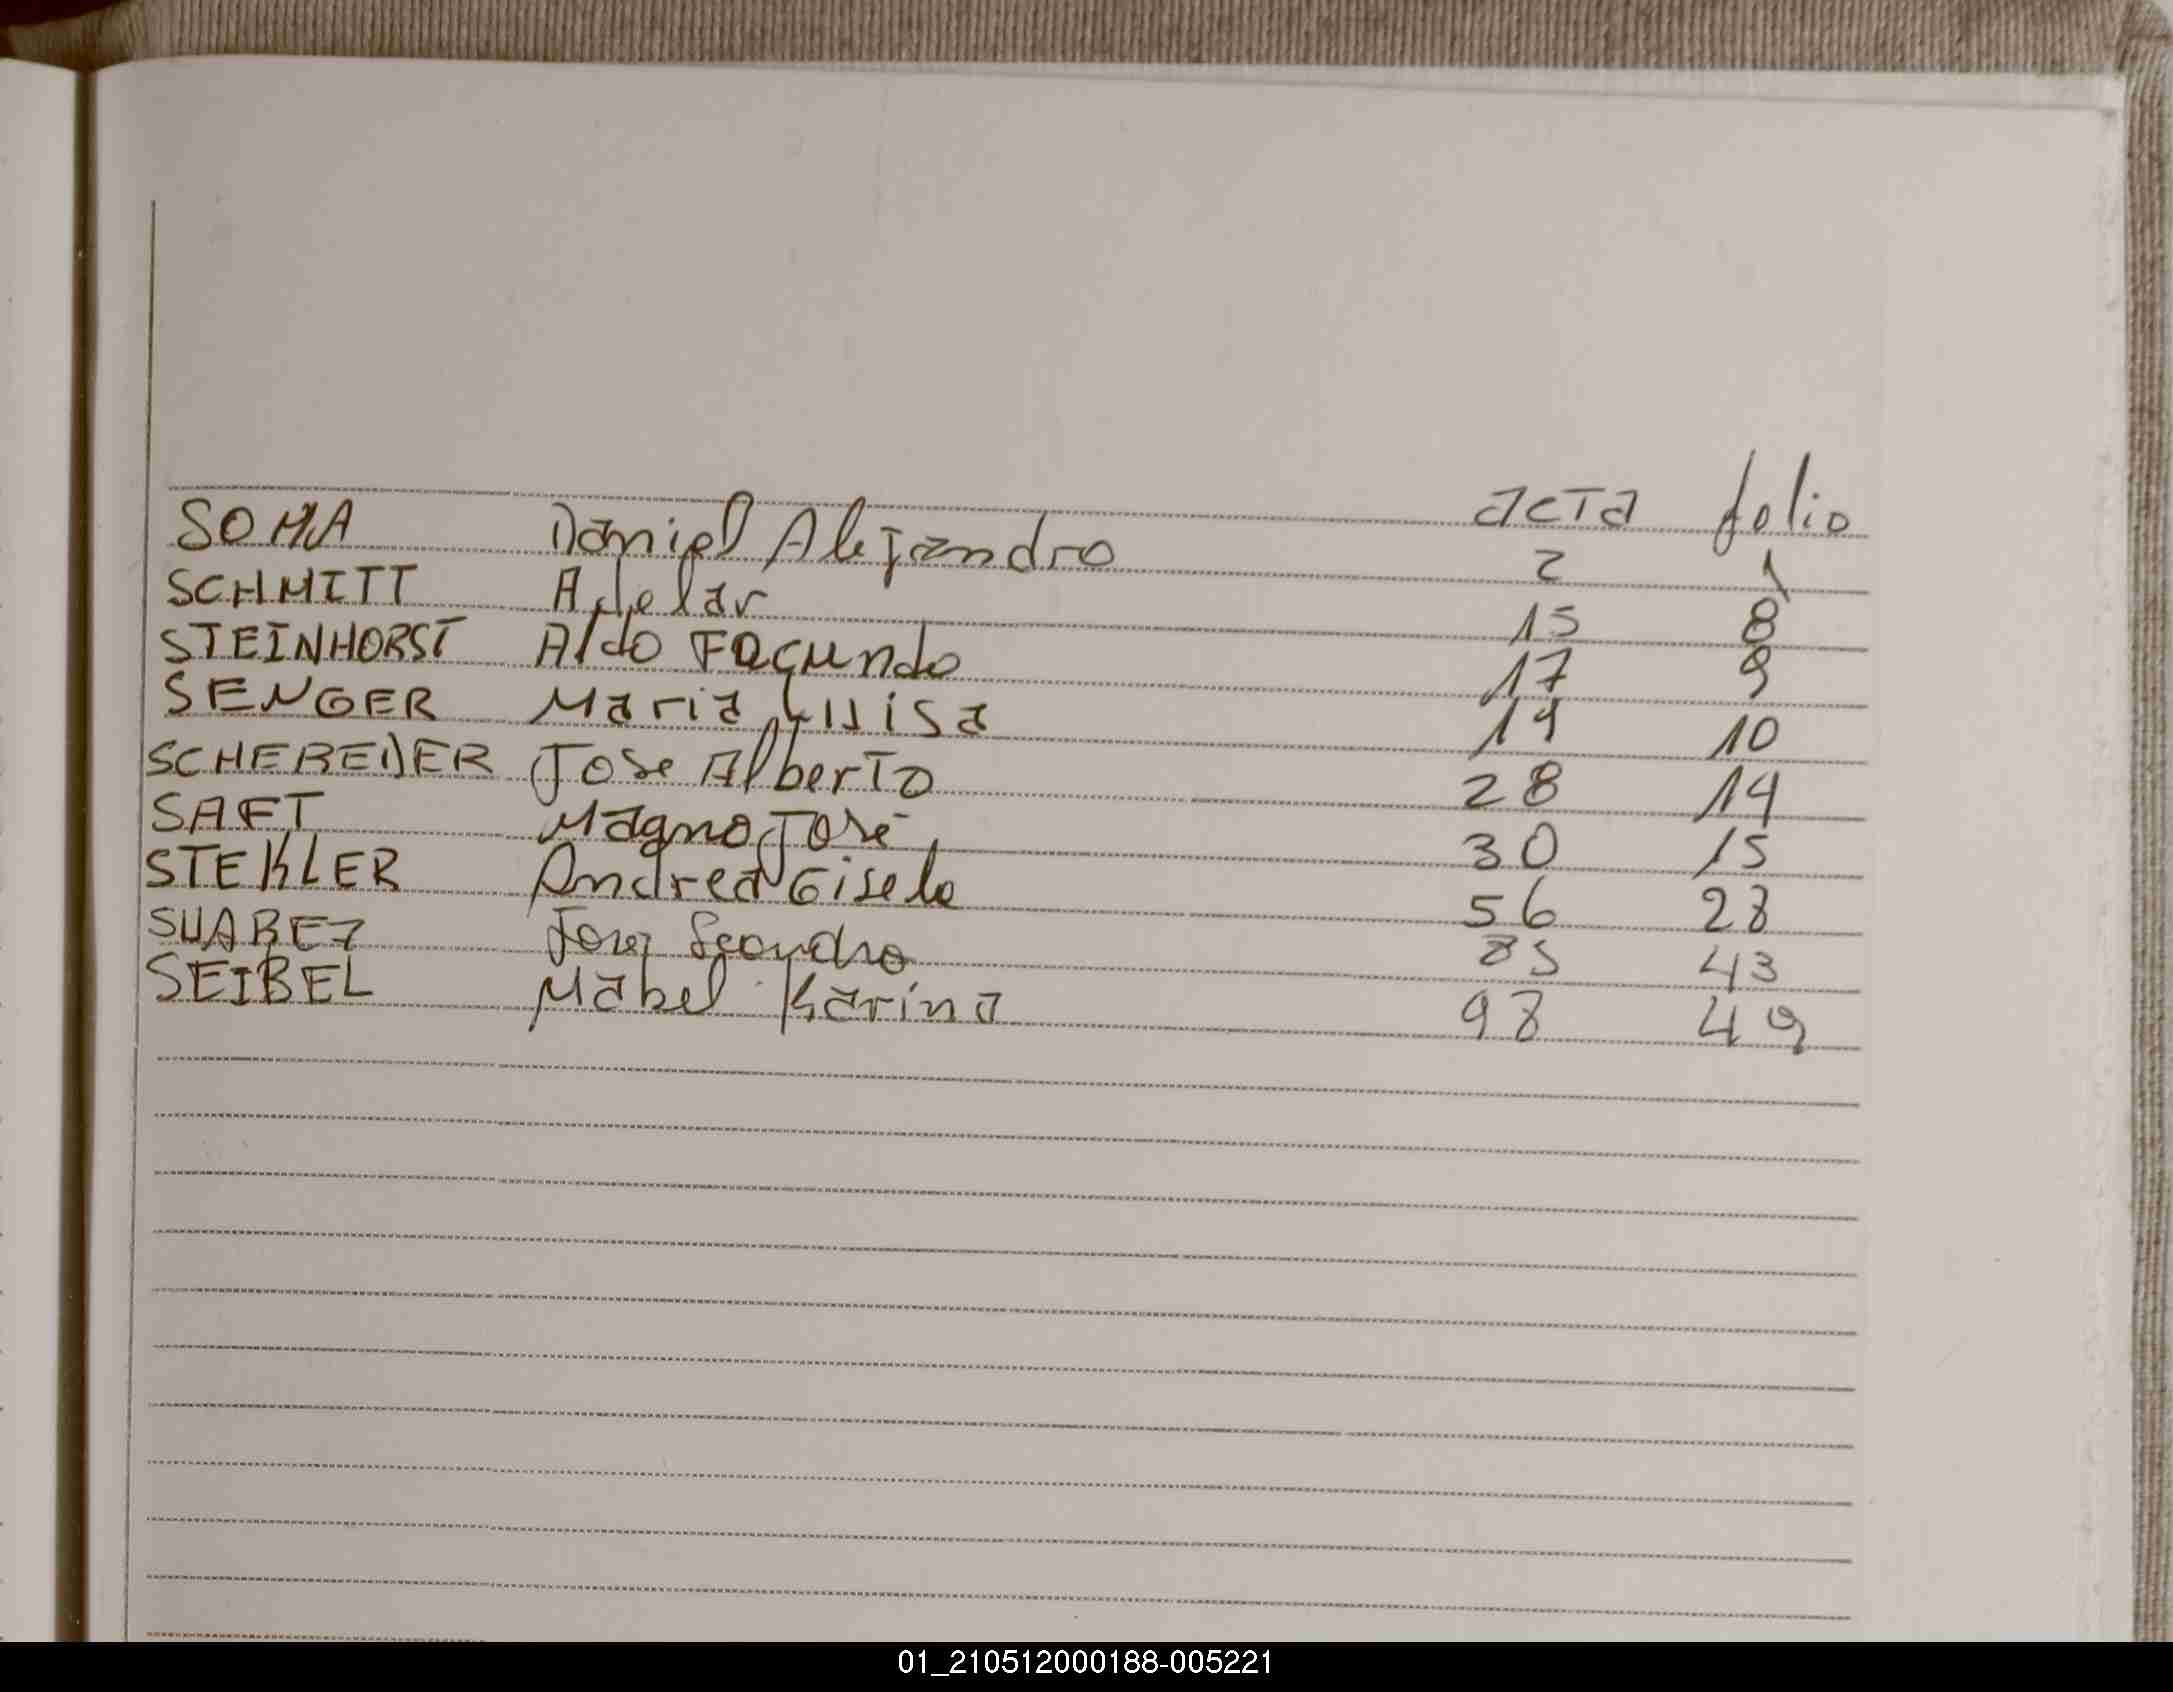 acta folio
SOMA Daniel Alejandro 2 1
SCHMITT Adelar 15 8
STEINHORST Aldo Facundo 17 9
SENGER Maria Luisa 19 10
SCHEREDER Jose Alberto 28 14
SAFT Magno José 30 15
STEKLER Andrea Gisela 56 28
SUAREZ Leandro 85 43
SEIBEL Mabel Karina 98 49
01_210512000188-005221